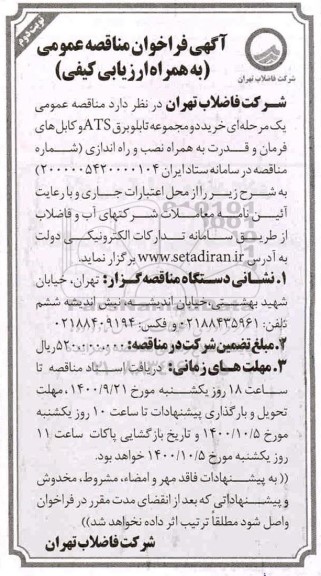 نوبت دوم
آگهی فراخوان مناقصه عمومی
(به همراه ارزیابی کیفی)
شرکت فاضلاب تهران
شرکت فاضلاب تهران در نظر دارد مناقصه عمومی
یک مرحله‌ای خرید دو مجموعه تابلو برق ATS و کابل های
فرمان و قدرت به همراه نصب و راه اندازی (شماره
مناقصه در سامانه ستاد ایران ۲۰۰۰۰۰۵۴۲۰۰۰۰۱۰۴)
به شرح زیر را از محل اعتبارات جاری و با رعایت
آئین نامه معاملات شرکتهای آب و فاضلاب
از طریق سامانه تدارکات الکترونیکی دولت
به آدرس www.setadiran.ir برگزار نماید.
۱. نشانی دستگاه مناقصه گزار: تهران، خیابان
شهید بهشتی، خیابان اندیشه، نبش اندیشه ششم
تلفن: ۰۲۱۸۸۴۳۵۹۶۱ و فکس: ۰۲۱۸۸۴۰۹۱۹۴
۲. مبلغ تضمین شرکت در مناقصه: ۵۲۰,۰۰۰,۰۰۰ ریال
۳. مهلت های زمانی: دریافت اسناد مناقصه تا
ساعت ۱۸ روز یکشنبه مورخ ۱۴۰۰/۹/۲۱، مهلت
تحویل و بارگذاری پیشنهادات تا ساعت ۱۰ روز یکشنبه
مورخ ۱۴۰۰/۱۰/۵ و تاریخ بازگشایی پاکات ساعت ۱۱
روز یکشنبه مورخ ۱۴۰۰/۱۰/۵ خواهد بود.
((به پیشنهادات فاقد مهر و امضاء، مشروط، مخدوش
و پیشنهاداتی که بعد از انقضای مدت مقرر در فراخوان
واصل شود مطلقاً ترتیب اثر داده نخواهد شد))
شرکت فاضلاب تهران